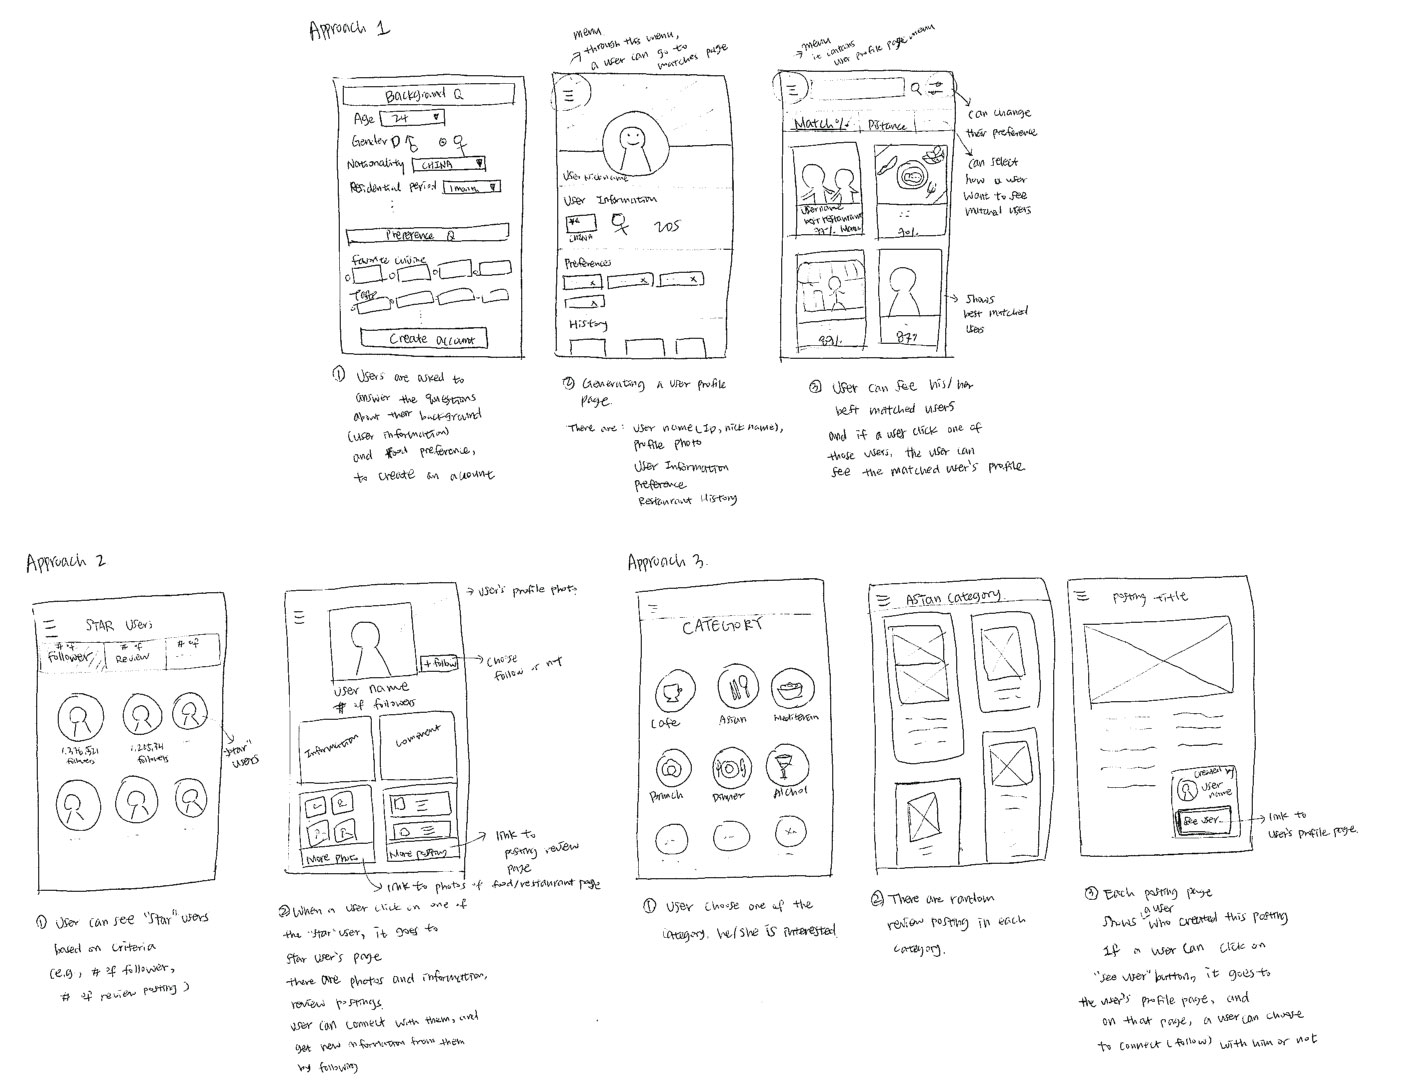 Approach 1
Background Q
Age 24
Gender
Nationality CHINA
Residential period 1 month
Preference Q
Favorite cuisine
Taste
Create account
① Users are asked to
answer the questions
about their background
(user information)
and food preference,
to create an account
menu
through this menu,
a user can go to
matches page
User Nickname
User Information
CHINA
20s
Preferences
x
x
x
x
History
② Generating a user profile
page.
There are : User name (ID, nick name),
profile photo
User Information
Preference
Restaurant History
menu
it contains
user profile page menu
Match%
Distance
Username
best restaurant
90%
89%
87%
can change
their preference
can select
how a user
want to see
matched users
Shows
best matched
users
③ User can see his/her
best matched users
and if a user click one of
those users, the user can
see the matched user's profile
Approach 2
STAR Users
# of
follower
# of
Review
# of
followers
followers
"star"
users
① User can see "star" users
based on criteria
(e.g, # of follower,
# of review posting)
User's profile photo
+ follow
choose
follow or not
User name
# of followers
Information
Comment
More photo
More posting
link to
posting review
page
link to photos of food/restaurant page
② When a user click on one of
the "star" user, it goes to
star user's page
there are photos and information,
review postings.
user can connect with them, and
get new information from them
by following
Approach 3.
CATEGORY
Cafe
Asian
Brunch
Dinner
Alchol
① User choose one of the
category. he/she is interested.
Asian Category.
② There are random
review posting in each
category.
Posting title
created by
User
name
See user..
link to
User's profile page.
③ Each posting page
shows a user who created this posting
If a user can click on
"see user" button, it goes to
the user's profile page, and
on that page, a user can choose
to connect (follow) with him or not